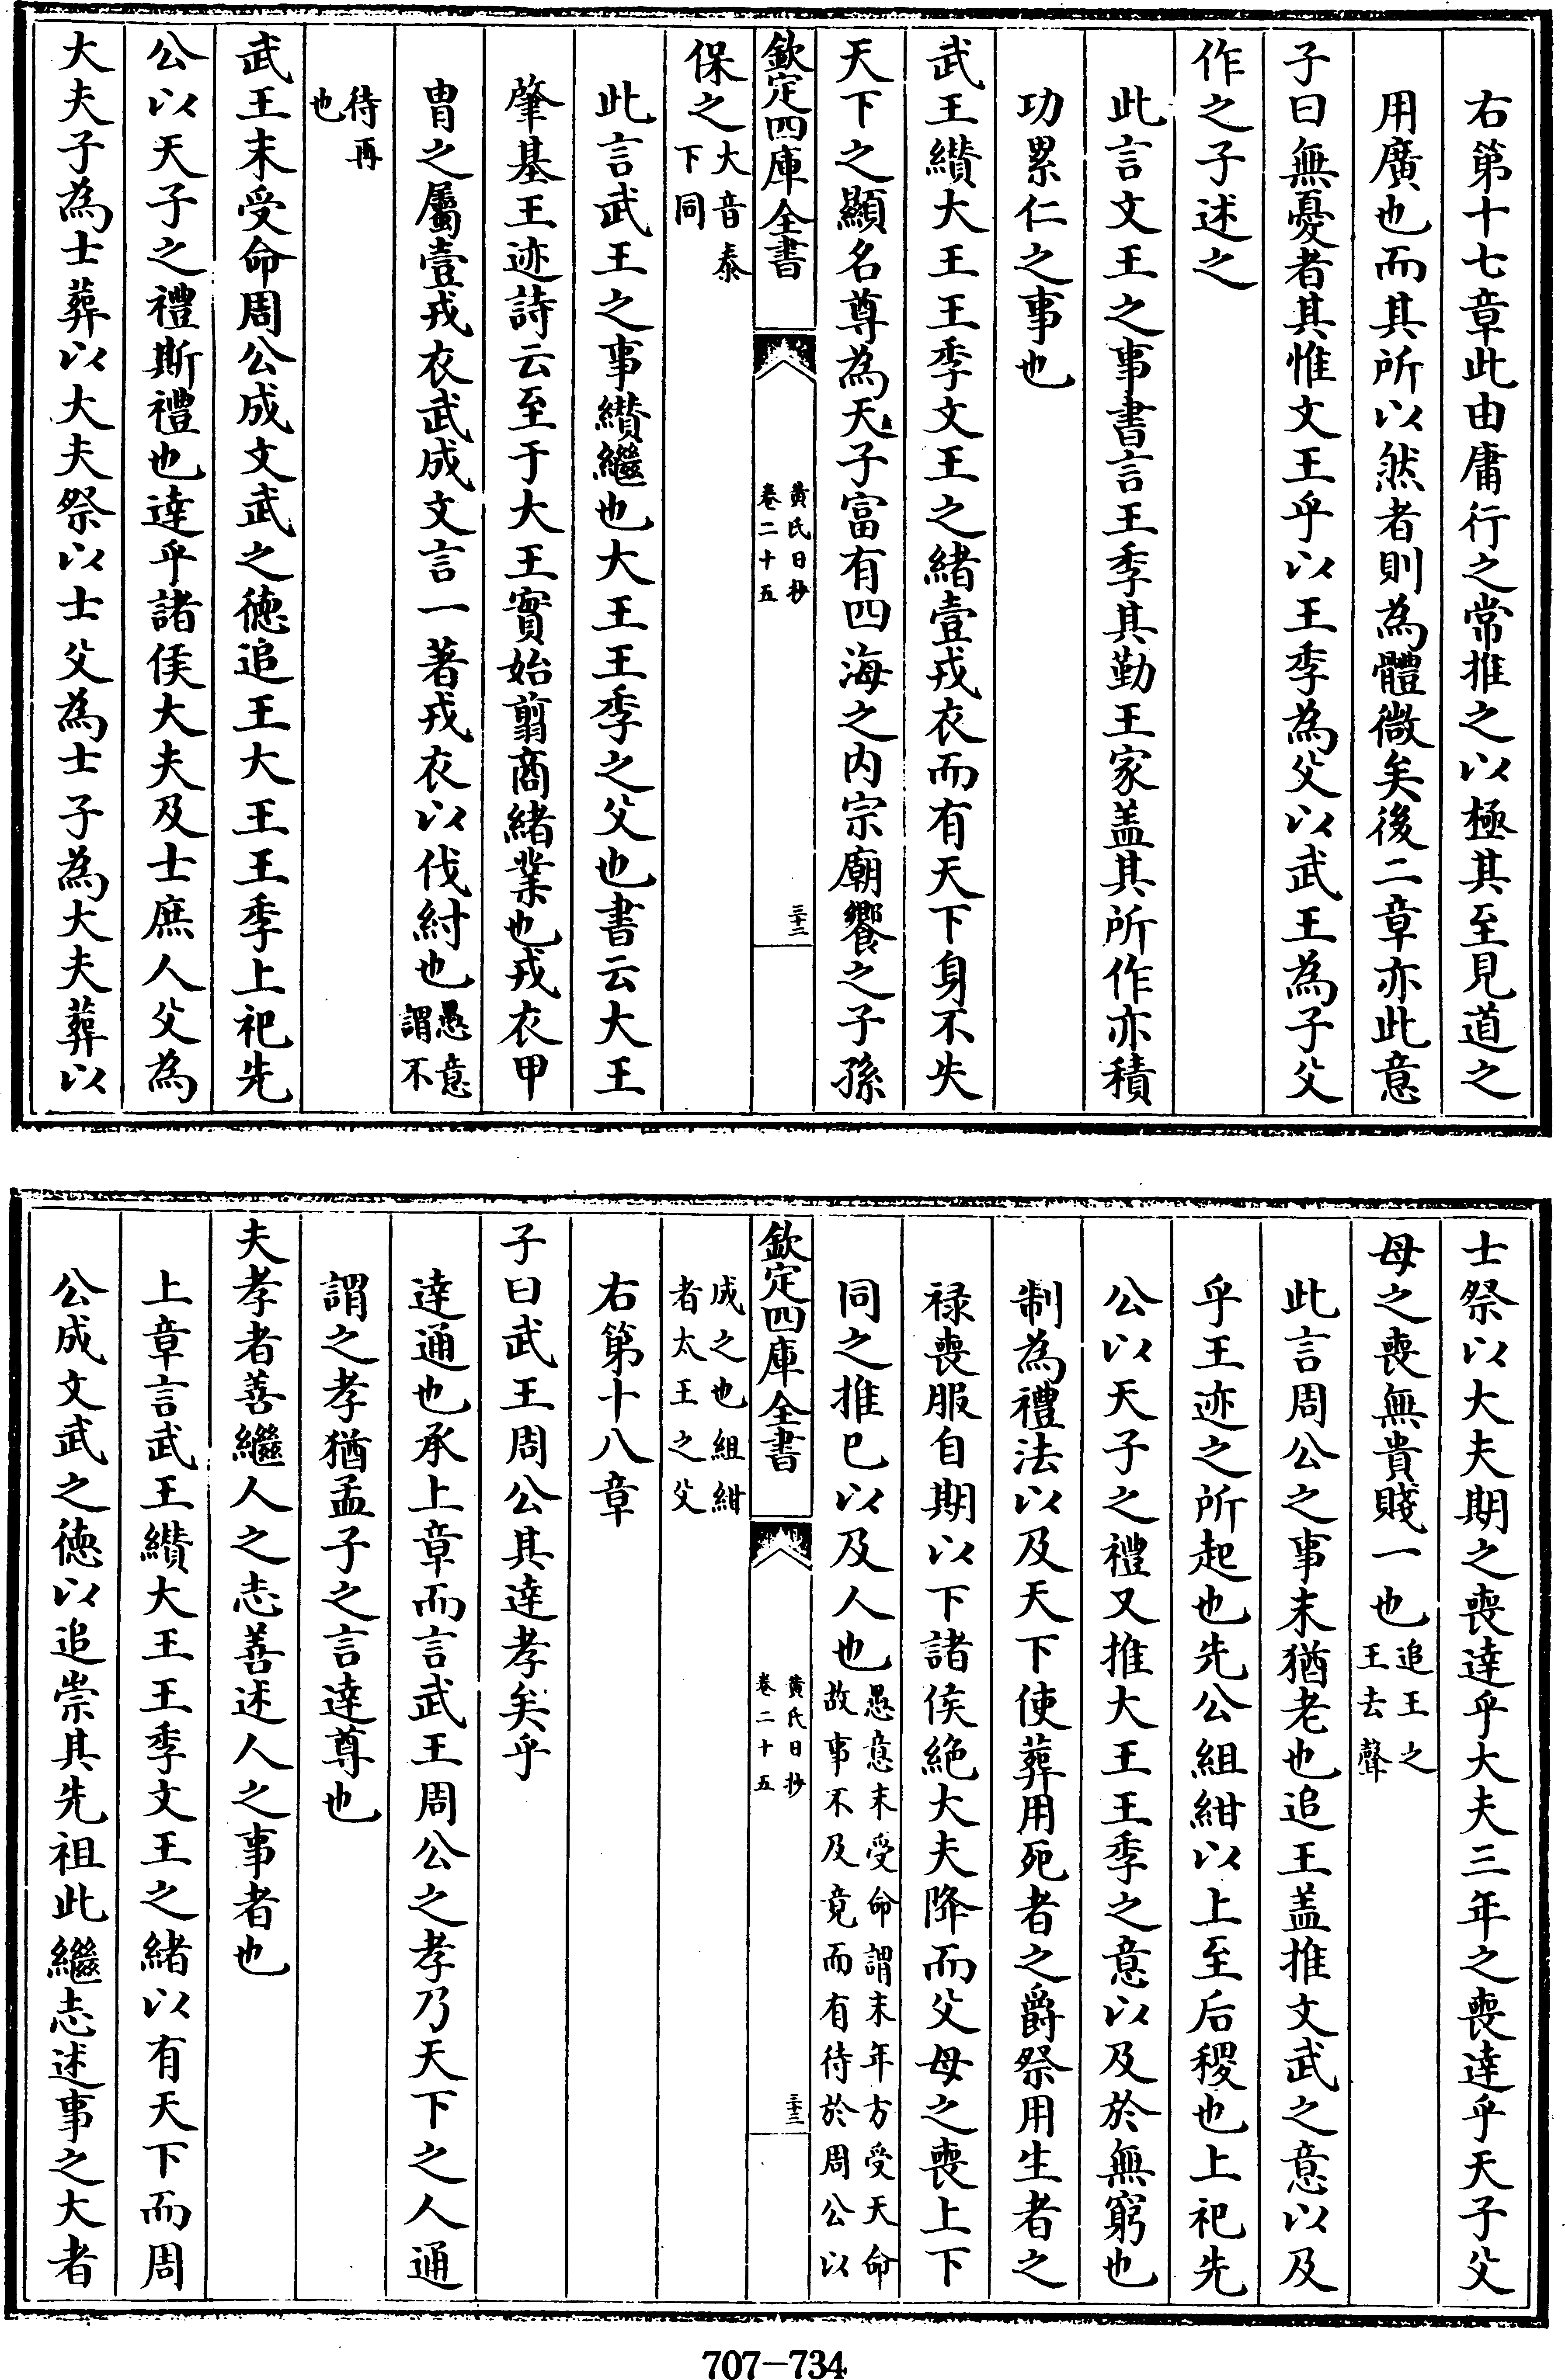 右第十七章此由庸行之常推之以極其至見道之
用廣也而其所以然者則為體微矣後二章亦此意
子曰無憂者其惟文王乎以王季為父以武王為子父
作之子述之
此言文王之事書言王季其勤王家盖其所作亦積
功累仁之事也
武王纘大王王季文王之緒壹戎衣而有天下身不失
天下之顯名尊為天子富有四海之内宗廟饗之子孫
欽定四庫全書
黄氏日抄
卷二十五
三十二
保之大音泰
下同
此言武王之事纘繼也大王王季之父也書云大王
肇基王迹詩云至于大王實始翦商緒業也戎衣甲
胄之屬壹戎衣武成文言一著戎衣以伐紂也愚意
謂不
待再
也
武王末受命周公成文武之德追王大王王季上祀先
公以天子之禮斯禮也達乎諸侯大夫及士庶人父為
大夫子為士葬以大夫祭以士父為士子為大夫葬以
士祭以大夫期之喪達乎大夫三年之喪達乎天子父
母之喪無貴賤一也追王之
王去聲
此言周公之事末猶老也追王盖推文武之意以及
乎王迹之所起也先公組紺以上至后稷也上祀先
公以天子之禮又推大王王季之意以及於無窮也
制為禮法以及天下使葬用死者之爵祭用生者之
禄喪服自期以下諸侯絶大夫降而父母之喪上下
同之推已以及人也愚意末受命謂末年方受天命
故事不及竟而有待於周公以
欽定四庫全書
黄氏日抄
卷二十五
三十三
成之也組紺
者太王之父
右第十八章
子曰武王周公其達孝矣乎
達通也承上章而言武王周公之孝乃天下之人通
謂之孝猶孟子之言達尊也
夫孝者善繼人之志善述人之事者也
上章言武王纘大王王季文王之緒以有天下而周
公成文武之德以追崇其先祖此繼志述事之大者
707-734